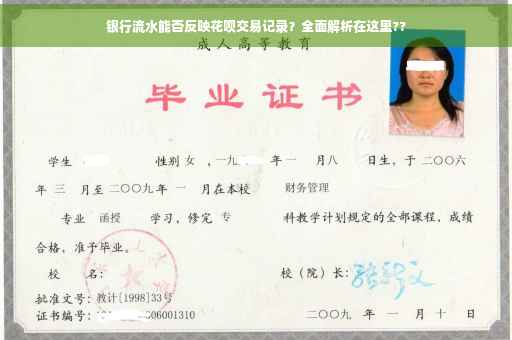 银行流水能否反映花呗交易记录？全面解析在这里??
成人高等教育
毕业证书
学生 性别 女 ，一九 年 一 月八 日生，于 二〇〇六
年 三 月至 二〇〇九 年 一 月在本校 财务管理
专业 函授 学习，修完 专 科教学计划规定的全部课程，成绩
合格，准予毕业。
校 名： 校（院）长：
批准文号：教计[1998]33号
证书编号： 06001310 二〇〇九 年 一 月 十 日